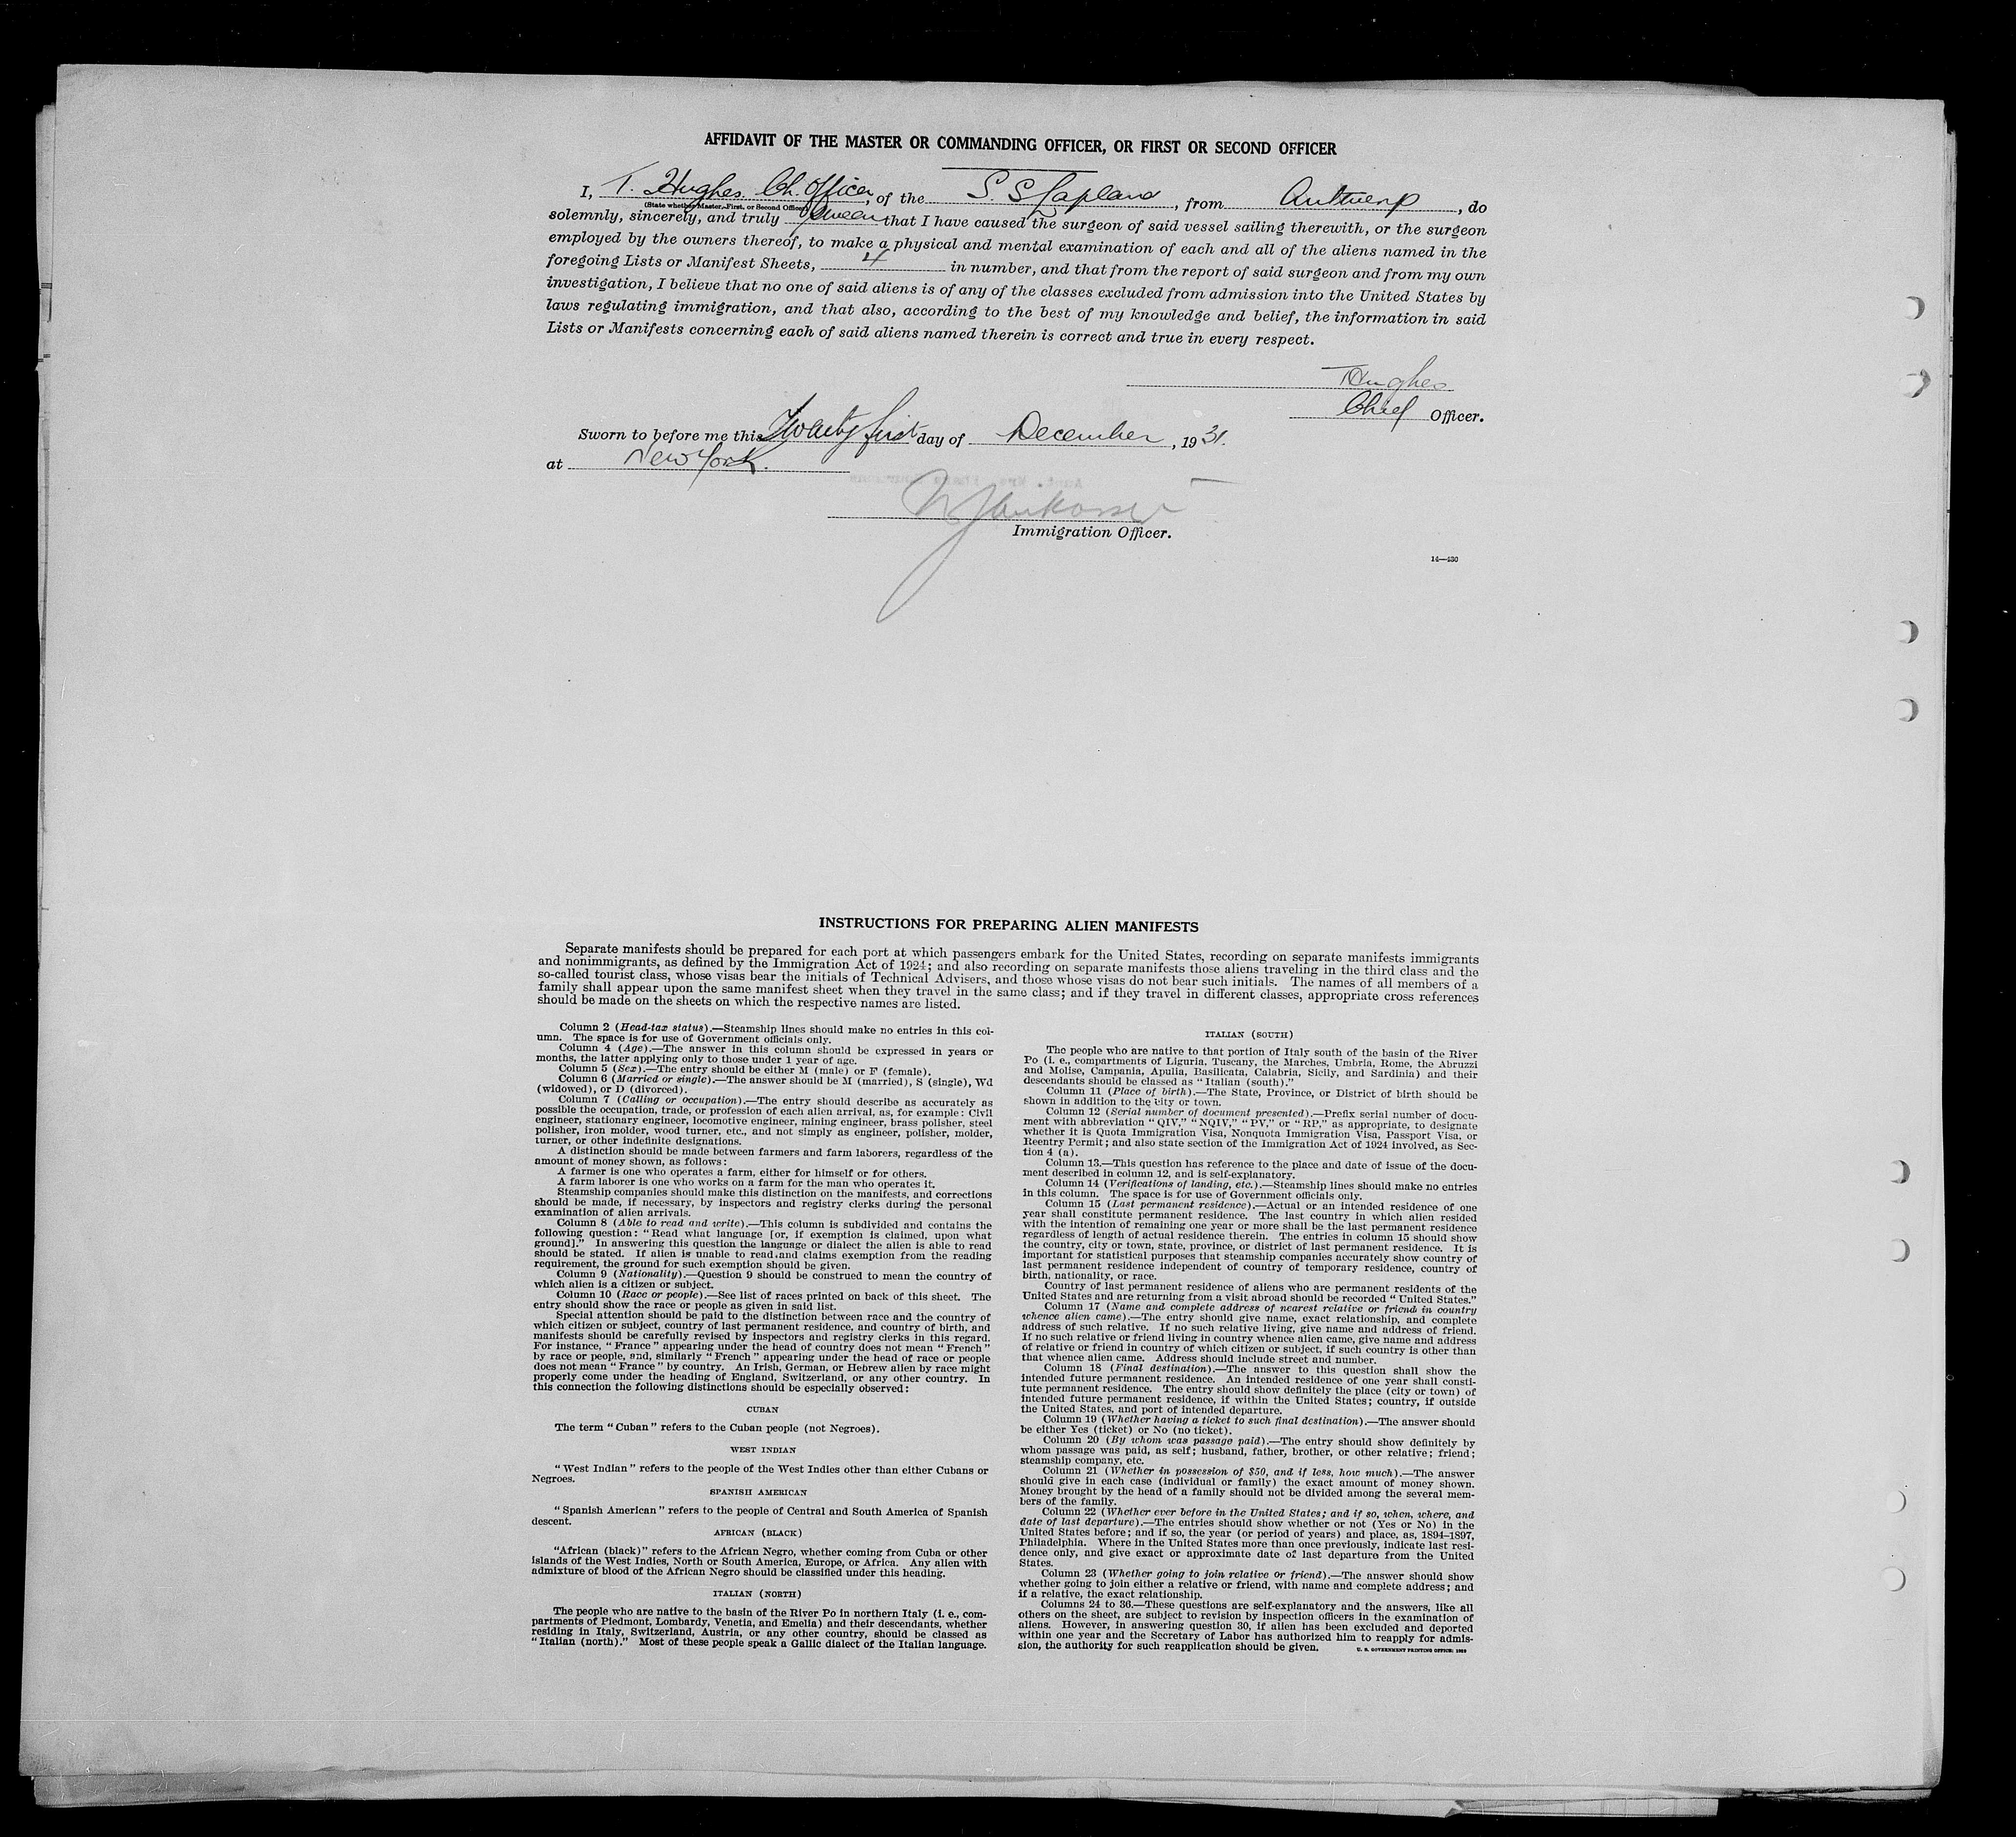 AFFIDAVIT OF THE MASTER OR COMMANDING OFFICER, OR FIRST OR SECOND OFFICER
I, T. Hughes. Ch. Officer, of the S. S. Lapland, from Antwerp, do
(State whether Master, First, or Second Officer)
solemnly, sincerely, and truly swear that I have caused the surgeon of said vessel sailing therewith, or the surgeon
employed by the owners thereof, to make a physical and mental examination of each and all of the aliens named in the
foregoing Lists or Manifest Sheets, 4 in number, and that from the report of said surgeon and from my own
investigation, I believe that no one of said aliens is of any of the classes excluded from admission into the United States by
laws regulating immigration, and that also, according to the best of my knowledge and belief, the information in said
Lists or Manifests concerning each of said aliens named therein is correct and true in every respect.
THughes
Chief Officer.
Sworn to before me this Twenty first day of December, 1931.
at New York.
Immigration Officer.
14—430
INSTRUCTIONS FOR PREPARING ALIEN MANIFESTS
Separate manifests should be prepared for each port at which passengers embark for the United States, recording on separate manifests immigrants
and nonimmigrants, as defined by the Immigration Act of 1924; and also recording on separate manifests those aliens traveling in the third class and the
so-called tourist class, whose visas bear the initials of Technical Advisers, and those whose visas do not bear such initials. The names of all members of a
family shall appear upon the same manifest sheet when they travel in the same class; and if they travel in different classes, appropriate cross references
should be made on the sheets on which the respective names are listed.
Column 2 (Head-tax status).—Steamship lines should make no entries in this col-
umn. The space is for use of Government officials only.
Column 4 (Age).—The answer in this column should be expressed in years or
months, the latter applying only to those under 1 year of age.
Column 5 (Sex).—The entry should be either M (male) or F (female).
Column 6 (Married or single).—The answer should be M (married), S (single), Wd
(widowed), or D (divorced).
Column 7 (Calling or occupation).—The entry should describe as accurately as
possible the occupation, trade, or profession of each alien arrival, as, for example: Civil
engineer, stationary engineer, locomotive engineer, mining engineer, brass polisher, steel
polisher, iron molder, wood turner, etc., and not simply as engineer, polisher, molder,
turner, or other indefinite designations.
A distinction should be made between farmers and farm laborers, regardless of the
amount of money shown, as follows:
A farmer is one who operates a farm, either for himself or for others.
A farm laborer is one who works on a farm for the man who operates it.
Steamship companies should make this distinction on the manifests, and corrections
should be made, if necessary, by inspectors and registry clerks during the personal
examination of alien arrivals.
Column 8 (Able to read and write).—This column is subdivided and contains the
following question: "Read what language [or, if exemption is claimed, upon what
ground]." In answering this question the language or dialect the alien is able to read
should be stated. If alien is unable to read and claims exemption from the reading
requirement, the ground for such exemption should be given.
Column 9 (Nationality).—Question 9 should be construed to mean the country of
which alien is a citizen or subject.
Column 10 (Race or people).—See list of races printed on back of this sheet. The
entry should show the race or people as given in said list.
Special attention should be paid to the distinction between race and the country of
which citizen or subject, country of last permanent residence, and country of birth, and
manifests should be carefully revised by inspectors and registry clerks in this regard.
For instance, "France" appearing under the head of country does not mean "French"
by race or people, and, similarly "French" appearing under the head of race or people
does not mean "France" by country. An Irish, German, or Hebrew alien by race might
properly come under the heading of England, Switzerland, or any other country. In
this connection the following distinctions should be especially observed:
CUBAN
The term "Cuban" refers to the Cuban people (not Negroes).
WEST INDIAN
"West Indian" refers to the people of the West Indies other than either Cubans or
Negroes.
SPANISH AMERICAN
"Spanish American" refers to the people of Central and South America of Spanish
descent.
AFRICAN (BLACK)
"African (black)" refers to the African Negro, whether coming from Cuba or other
islands of the West Indies, North or South America, Europe, or Africa. Any alien with
admixture of blood of the African Negro should be classified under this heading.
ITALIAN (NORTH)
The people who are native to the basin of the River Po in northern Italy (i. e., com-
partments of Piedmont, Lombardy, Venetia, and Emelia) and their descendants, whether
residing in Italy, Switzerland, Austria, or any other country, should be classed as
"Italian (north)." Most of these people speak a Gallic dialect of the Italian language.
ITALIAN (SOUTH)
The people who are native to that portion of Italy south of the basin of the River
Po (i. e., compartments of Liguria, Tuscany, the Marches, Umbria, Rome, the Abruzzi
and Molise, Campania, Apulia, Basilicata, Calabria, Sicily, and Sardinia) and their
descendants should be classed as "Italian (south)."
Column 11 (Place of birth).—The State, Province, or District of birth should be
shown in addition to the city or town.
Column 12 (Serial number of document presented).—Prefix serial number of docu-
ment with abbreviation "QIV," "NQIV," "PV," or "RP," as appropriate, to designate
whether it is Quota Immigration Visa, Nonquota Immigration Visa, Passport Visa, or
Reentry Permit; and also state section of the Immigration Act of 1924 involved, as Sec-
tion 4 (a).
Column 13.—This question has reference to the place and date of issue of the docu-
ment described in column 12, and is self-explanatory.
Column 14 (Verifications of landing, etc.).—Steamship lines should make no entries
in this column. The space is for use of Government officials only.
Column 15 (Last permanent residence).—Actual or an intended residence of one
year shall constitute permanent residence. The last country in which alien resided
with the intention of remaining one year or more shall be the last permanent residence
regardless of length of actual residence therein. The entries in column 15 should show
the country, city or town, state, province, or district of last permanent residence. It is
important for statistical purposes that steamship companies accurately show country of
last permanent residence independent of country of temporary residence, country of
birth, nationality, or race.
Country of last permanent residence of aliens who are permanent residents of the
United States and are returning from a visit abroad should be recorded "United States."
Column 17 (Name and complete address of nearest relative or friend in country
whence alien came).—The entry should give name, exact relationship, and complete
address of such relative. If no such relative living, give name and address of friend.
If no such relative or friend living in country whence alien came, give name and address
of relative or friend in country of which citizen or subject, if such country is other than
that whence alien came. Address should include street and number.
Column 18 (Final destination).—The answer to this question shall show the
intended future permanent residence. An intended residence of one year shall consti-
tute permanent residence. The entry should show definitely the place (city or town) of
intended future permanent residence, if within the United States; country, if outside
the United States, and port of intended departure.
Column 19 (Whether having a ticket to such final destination).—The answer should
be either Yes (ticket) or No (no ticket).
Column 20 (By whom was passage paid).—The entry should show definitely by
whom passage was paid, as self; husband, father, brother, or other relative; friend;
steamship company, etc.
Column 21 (Whether in possession of $50, and if less, how much).—The answer
should give in each case (individual or family) the exact amount of money shown.
Money brought by the head of a family should not be divided among the several mem-
bers of the family.
Column 22 (Whether ever before in the United States; and if so, when, where, and
date of last departure).—The entries should show whether or not (Yes or No) in the
United States before; and if so, the year (or period of years) and place, as, 1894–1897,
Philadelphia. Where in the United States more than once previously, indicate last resi-
dence only, and give exact or approximate date of last departure from the United
States.
Column 23 (Whether going to join relative or friend).—The answer should show
whether going to join either a relative or friend, with name and complete address; and
if a relative, the exact relationship.
Columns 24 to 36.—These questions are self-explanatory and the answers, like all
others on the sheet, are subject to revision by inspection officers in the examination of
aliens. However, in answering question 30, if alien has been excluded and deported
within one year and the Secretary of Labor has authorized him to reapply for admis-
sion, the authority for such reapplication should be given.
U. S. GOVERNMENT PRINTING OFFICE: